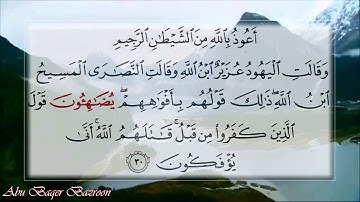 أَعُوذُ بِٱللَّهِ مِنَ ٱلشَّيْطَٰنِ ٱلرَّجِيمِ
وَقَالَتِ ٱلْيَهُودُ عُزَيْرٌ ٱبْنُ ٱللَّهِ وَقَالَتِ ٱلنَّصَٰرَى ٱلْمَسِيحُ
ٱبْنُ ٱللَّهِ ۖ ذَٰلِكَ قَوْلُهُم بِأَفْوَٰهِهِمْ ۖ يُضَٰهِـُٔونَ قَوْلَ
ٱلَّذِينَ كَفَرُوا۟ مِن قَبْلُ ۚ قَٰتَلَهُمُ ٱللَّهُ ۚ أَنَّىٰ
يُؤْفَكُونَ ٣٠
Abu Baqer Bazroon